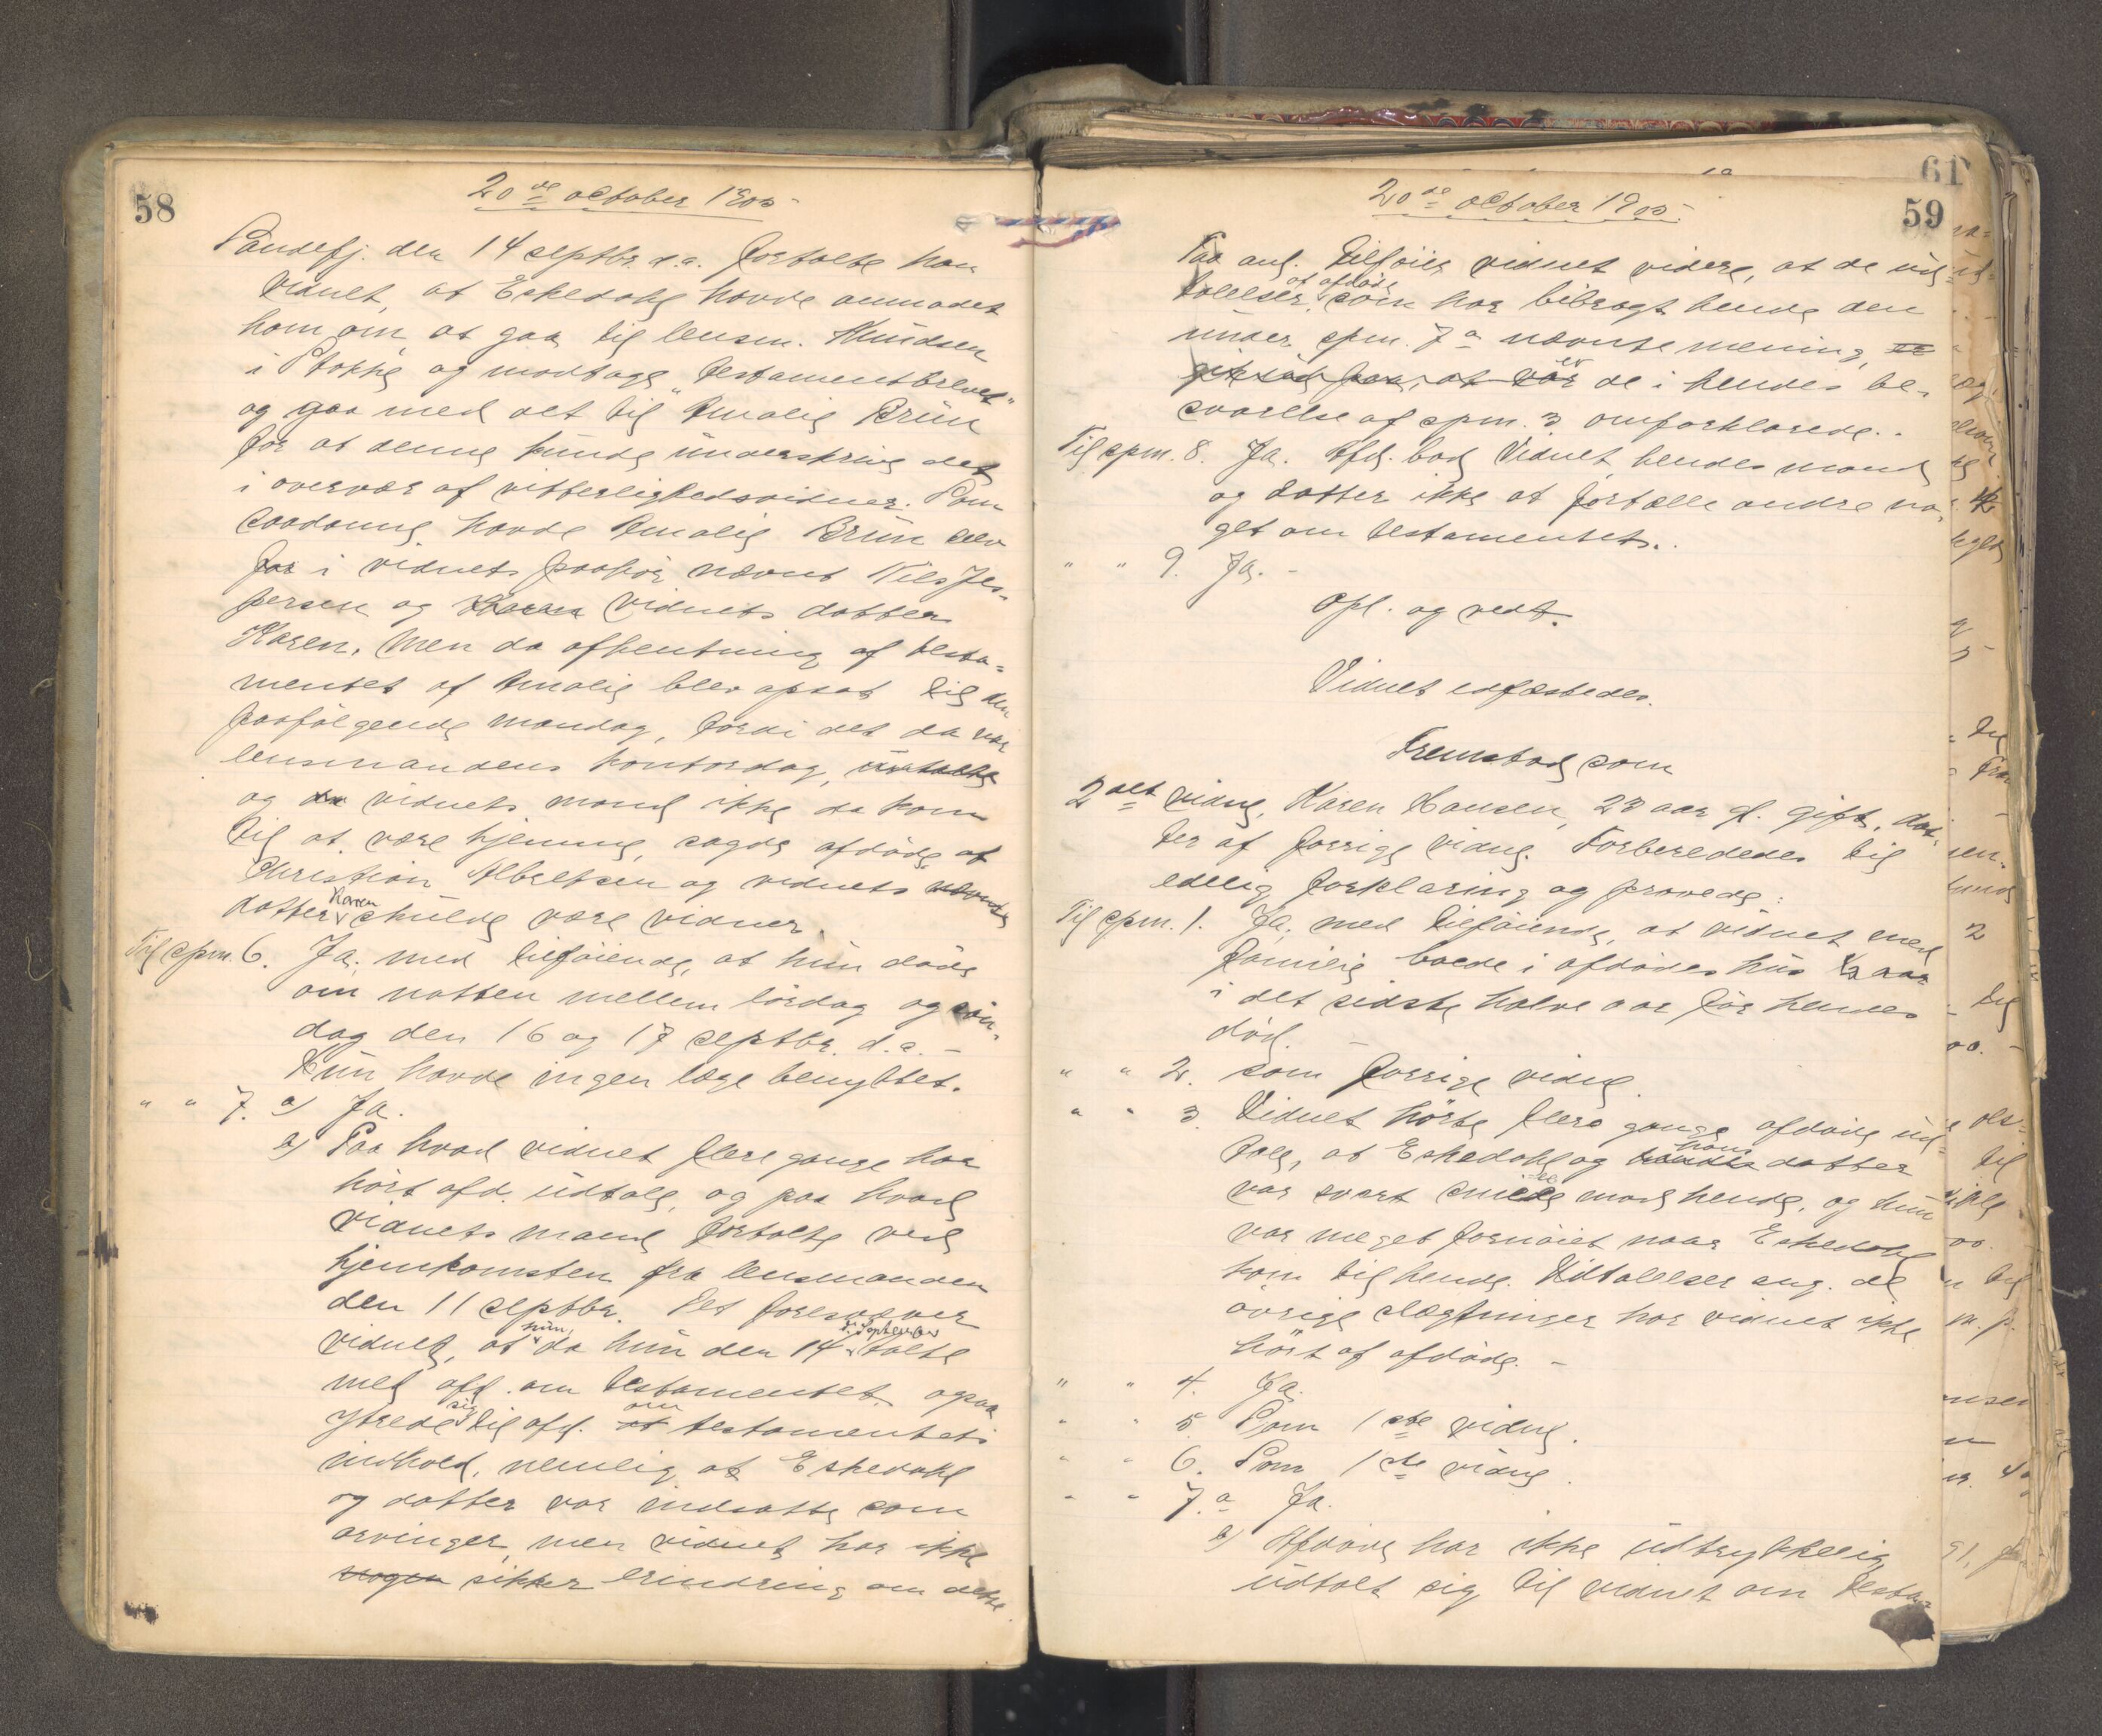 58
20de october 1905
Sandefj. den 14 septbr. d.a. fortalte han
vidnet, at Eskedahl havde anmodet
ham om at gaa til lensm. Knudsen
i Stokke og modtage "testamentbrevet"
og gaa med det til Amalie Brun
for at denne kunde underskrive det
i overvær af vitterlighedsvidner. Som
saadanne havde Amalie Brun selv
før i vidnets paahør nævnt Nils Jes-
persen og vidnets datter
Karen. Men da afhentning af testa-
mentet af Amalie blev opsat til den
paafølgende mandag, fordi det da var
lensmandens kontordag,
og da vidnets mand ikke da kom
til at være hjemme, sagde afdøde at
Christian Albretsen og vidnets
datter Karen skulde være vidner.
Til spm. 6. Ja, med tilføiende, at hun døde
om natten mellem lørdag og søn-
dag den 16 og 17 septbr. d.a. –
Hun havde ingen læge benyttet.
" " 7. a) Ja.
b) Paa hvad vidnet flere gange har
hørt afd. udtale, og paa hvad
vidnets mand fortalte ved
hjemkomsten fra lensmanden
den 11 septbr. Det foresvæver
vidnet, at hun, da hun den 14 september talte
med afd. om testamentet, ogsaa
ytrede sig til afd. om testamentets
indhold, nemlig at Eskedahl
og datter var indsatte som
arvinger, men vidnet har ikke
nogen sikker erindring om dette.
61
59
20de october 1905.
Paa anl. tilføier vidnet videre, at de ud-
talelser af afdøde, som har bibragt hende den
under spm. 7 a nævnte mening,
gik ud paa, at var er de i hendes be-
svarelse af spm. 3 omforklarede.
Til spm. 8. Ja. Afd. bad vidnet, hendes mand
og datter ikke at fortælle andre no-
get om testamentet.
" " 9. Ja. –
Opl. og vedt.
Vidnet edfæstedes.
Fremstod som
2det vidne, Karen Hansen, 23 aar gl. gift, dat-
ter af forrige vidne. Forberededes til
edelig forklaring og provede:
Til spm. 1. Ja, med tilføiende, at vidnet med
familie boede i afdødes hus ½ aar
i det sidste halve aar før hendes
død. –
" " 2. Som forrige vidne.
" " 3. Vidnet hørte flere gange afdøde ud-
tale, at Eskedahl og hans datter
var svært snille mod hende, og hun
var meget fornøiet naar Eskedahl
kom til hende. Udtalelser ang. de
øvrige slægtninger har vidnet ikke
hørt af afdøde. –
" " 4. Ja.
" " 5. Som 1ste vidne.
" " 6. Som 1ste vidne.
" " 7. a Ja.
b) Afdøde har ikke udtrykkelig
udtalt sig til vidnet om testa-